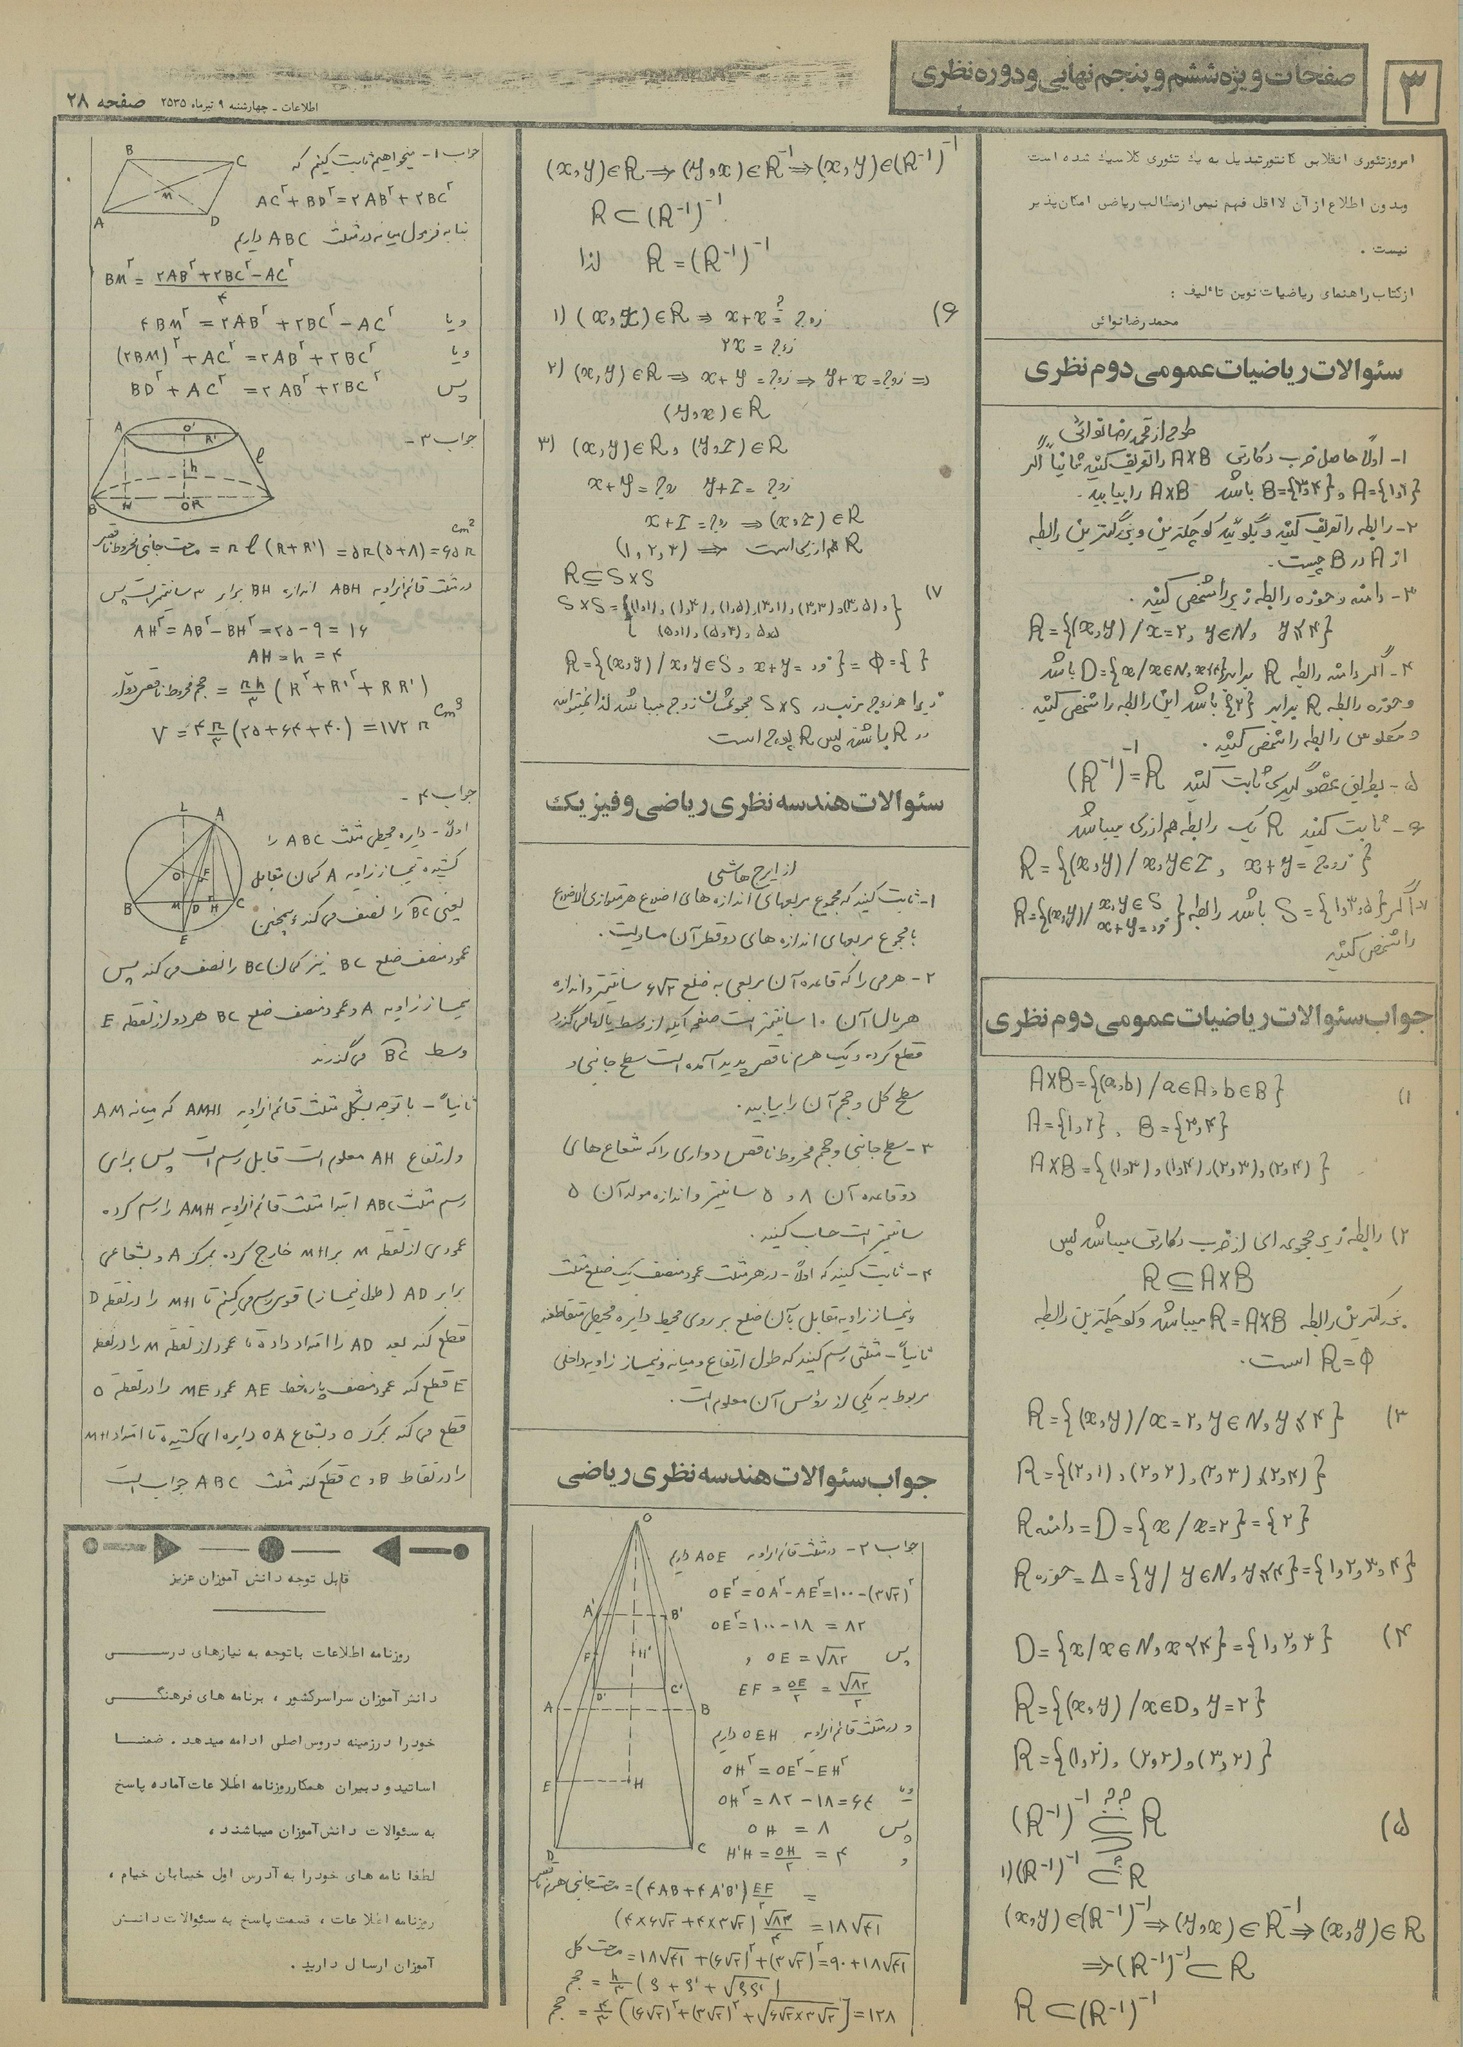 صفحات ویژه ششم و پنجم نهایی و دوره نظری
۳
اطلاعات ـ چهارشنبه ۹ تیرماه ۲۵۳۵ صفحه ۲۸
امروز تئوری انقلابی کانتور تبدیل به یك تئوری کلاسیك شده است
وبدون اطلاع از آن لااقل فهم نیمی از مطالب ریاضی امکان پذیر
نیست .
از کتاب راهنمای ریاضیات نوین تألیف :
محمدرضا نوائی
سئوالات ریاضیات عمومی دوم نظری
طرح از محمدرضا نوائی
۱- اولاً حاصل ضرب دکارتی A×B را تعریف کنید ثانیاً اگر
A={۱,۲} و B={۳,۴} باشد A×B را بیابید .
۲- رابطه را تعریف کنید و بگوئید کوچکترین و بزرگترین رابطه
از A در B چیست .
۳- دامنه و حوزه رابطه زیر را مشخص کنید .
R={(x,y) / x=۲, y∈N, y≤۴}
۴- اگر دامنه رابطه R برابر D={x/x∈N,x<۴} باشد
و حوزه رابطه R برابر {۲} باشد این رابطه را مشخص کنید
و معکوس رابطه را مشخص کنید .
۵- بطریق عضوگیری ثابت کنید (R⁻¹)⁻¹=R
۶- ثابت کنید R یک رابطه هم ارزی میباشد
R={(x,y) / x,y∈Z , x+y= زوج}
۷- اگر S={۱,۳,۵} باشد رابطه R={(x,y)/ x,y∈S x+y=فرد}
را مشخص کنید
جواب سئوالات ریاضیات عمومی دوم نظری
۱) A×B={(a,b) / a∈A, b∈B}
A={۱,۲} , B={۳,۴}
A×B={(۱,۳),(۱,۴),(۲,۳),(۲,۴)}
۲) رابطه زیر مجموعه ای از ضرب دکارتی میباشد پس
R⊆A×B
بزرگترین رابطه R=A×B میباشد و کوچکترین رابطه
R=Φ است .
۳) R={(x,y)/x=۲, y∈N, y≤۴}
R={(۲,۱),(۲,۲),(۲,۳),(۲,۴)}
دامنه R=D={x/x=۲}={۲}
حوزه R=Δ={y/ y∈N, y≤۴}={۱,۲,۳,۴}
۴) D={x/x∈N, x<۴}={۱,۲,۳}
R={(x,y) / x∈D, y=۲}
R={(۱,۲),(۲,۲),(۳,۲)}
۵) (R⁻¹)⁻¹ ⊆ ⊇ R
۱) (R⁻¹)⁻¹ ⊂ R
(x,y)∈(R⁻¹)⁻¹⇒(y,x)∈R⁻¹⇒(x,y)∈R
⇒(R⁻¹)⁻¹⊂R
R⊂(R⁻¹)⁻¹
(x,y)∈R⇒(y,x)∈R⁻¹⇒(x,y)∈(R⁻¹)⁻¹
R⊂(R⁻¹)⁻¹
لذا R=(R⁻¹)⁻¹
۶) ۱) (x,x)∈R ⇒ x+x = زوج
۲x = زوج
۲) (x,y)∈R ⇒ x+y = زوج ⇒ y+x = زوج ⇒
(y,x)∈R
۳) (x,y)∈R , (y,z)∈R
x+y = زوج y+z = زوج
x+z = زوج ⇒ (x,z)∈R
(۱,۲,۳) ⇒ R هم ارزی است
R⊆S×S
۷) S×S={(۱,۱),(۱,۳),(۱,۵),(۳,۱),(۳,۳),(۳,۵),
(۵,۱),(۵,۳),(۵,۵)}
R={(x,y) / x,y∈S, x+y = فرد} = Φ = { }
زیرا هر زوج مرتب در S×S مجموعشان زوج میباشد لذا نمیتواند
در R باشد پس R پوچ است
سئوالات هندسه نظری ریاضی و فیزیك
از ایرج هاشمی
۱- ثابت کنید که مجموع مربعهای اندازه های اضلاع هر متوازی الاضلاع
با مجموع مربعهای اندازه های دو قطر آن مساویست .
۲- هرمی را که قاعده آن مربعی به ضلع ۶√۲ سانتیمتر و اندازه
هر یال آن ۱۰ سانتیمتر است صفحه ایکه از وسط یالها می گذرد
قطع کرده و یک هرم ناقص پدید آمده است سطح جانبی و
سطح کل و حجم آن را بیابید .
۳- سطح جانبی و حجم مخروط ناقص دواری را که شعاع های
دو قاعده آن ۸ و ۵ سانتیمتر و اندازه مولد آن ۵
سانتیمتر است حساب کنید .
۴- ثابت کنید که اولاً- در هر مثلث عمود منصف یک ضلع مثلث
و نیمساز زاویه مقابل بآن ضلع بر روی محیط دایره محیطی متقاطعند
ثانیاً- مثلثی رسم کنید که طول ارتفاع و میانه و نیمساز زاویه داخلی
مربوط به یکی از رؤس آن معلوم است .
جواب سئوالات هندسه نظری ریاضی
جواب ۲- در مثلث قائم الزاویه AOE داریم
OE²=OA²-AE²=۱۰۰-(۳√۲)²
OE²=۱۰۰-۱۸ = ۸۲
پس OE = √۸۲ ,
EF = OE/۲ = √۸۲/۲
و در مثلث قائم الزاویه OEH داریم
OH²=OE²-EH²
ویا OH²=۸۲-۱۸=۶۴
پس OH = ۸
و H'H = OH/۲ = ۴
مساحت جانبی هرم ناقص=(۴AB+۴A'B') EF/۲ =
(۴×۶√۲+۴×۳√۲) √۸۲/۴ =۱۸√۴۱
مساحت کل=۱۸√۴۱+(۶√۲)²+(۳√۲)²=۹۰+۱۸√۴۱
حجم = h/۳ (S+S'+√SS')
حجم = ۴/۳ [(۶√۲)²+(۳√۲)²+√۶√۲×۳√۲]=۱۲۸
O
A' B'
F H'
D' C'
A B
E H
D C
جواب ۱- میخواهیم ثابت کنیم که
AC²+BD²=۲AB²+۲BC²
بنا به فرمول میانه در مثلث ABC داریم
BM²= ۲AB²+۲BC²-AC² / ۴
ویا ۴BM²=۲AB²+۲BC²-AC²
ویا (۲BM)²+AC²=۲AB²+۲BC²
پس BD²+AC²=۲AB²+۲BC²
B C
M
A D
جواب ۳-
A O' R'
h l
B H O R
مساحت جانبی مخروط ناقص = πl(R+R')=۵π(۵+۸)=۶۵π cm²
در مثلث قائم الزاویه ABH اندازه BH برابر ۳ سانتیمتر است پس
AH²=AB²-BH²=۲۵-۹=۱۶
AH=h=۴
حجم مخروط ناقص دوار = πh/۳ (R²+R'²+RR')
V=۴π/۳(۲۵+۶۴+۴۰)=۱۷۲π cm³
جواب ۴-
اولاً- دایره محیطی مثلث ABC را
کشیده نیمساز زاویه A کمان مقابل
یعنی BC را نصف می کند و همچنین
عمود منصف ضلع BC نیز کمان BC را نصف می کند پس
نیمساز زاویه A و عمود منصف ضلع BC هر دو از نقطه E
وسط BC می گذرند
L A
O F
B M D H C
E
ثانیاً- با توجه بشکل مثلث قائم الزاویه AMH که میانه AM
و ارتفاع AH معلوم است قابل رسم است پس برای
رسم مثلث ABC ابتدا مثلث قائم الزاویه AMH را رسم کرده
عمودی از نقطه M بر MH خارج کرده بمرکز A و بشعاعی
برابر AD (طول نیمساز) قوسی رسم می کنیم تا MH را در نقطه D
قطع کند بعد AD را امتداد داده تا عمود از نقطه M را در نقطه
E قطع کند عمود منصف پاره خط AE عمود ME را در نقطه O
قطع می کند بمرکز O و بشعاع OA دایره ای کشیده تا امتداد MH
را در نقاط B و C قطع کند مثلث ABC جواب است
قابل توجه دانش آموزان عزیز
روزنامه اطلاعات باتوجه به نیازهای درســـی
دانش آموزان سراسر کشور ، برنامه های فرهنگـــی
خود را در زمینه دروس اصلی ادامه میدهد . ضمنــا
اساتید و دبیران همکار روزنامه اطلاعات آماده پاسخ
به سئوالات دانش آموزان میباشند ،
لطفا نامه های خود را به آدرس اول خیابان خیام ،
روزنامه اطلاعات ، قسمت پاسخ به سئوالات دانــش
آموزان ارسال دارید .